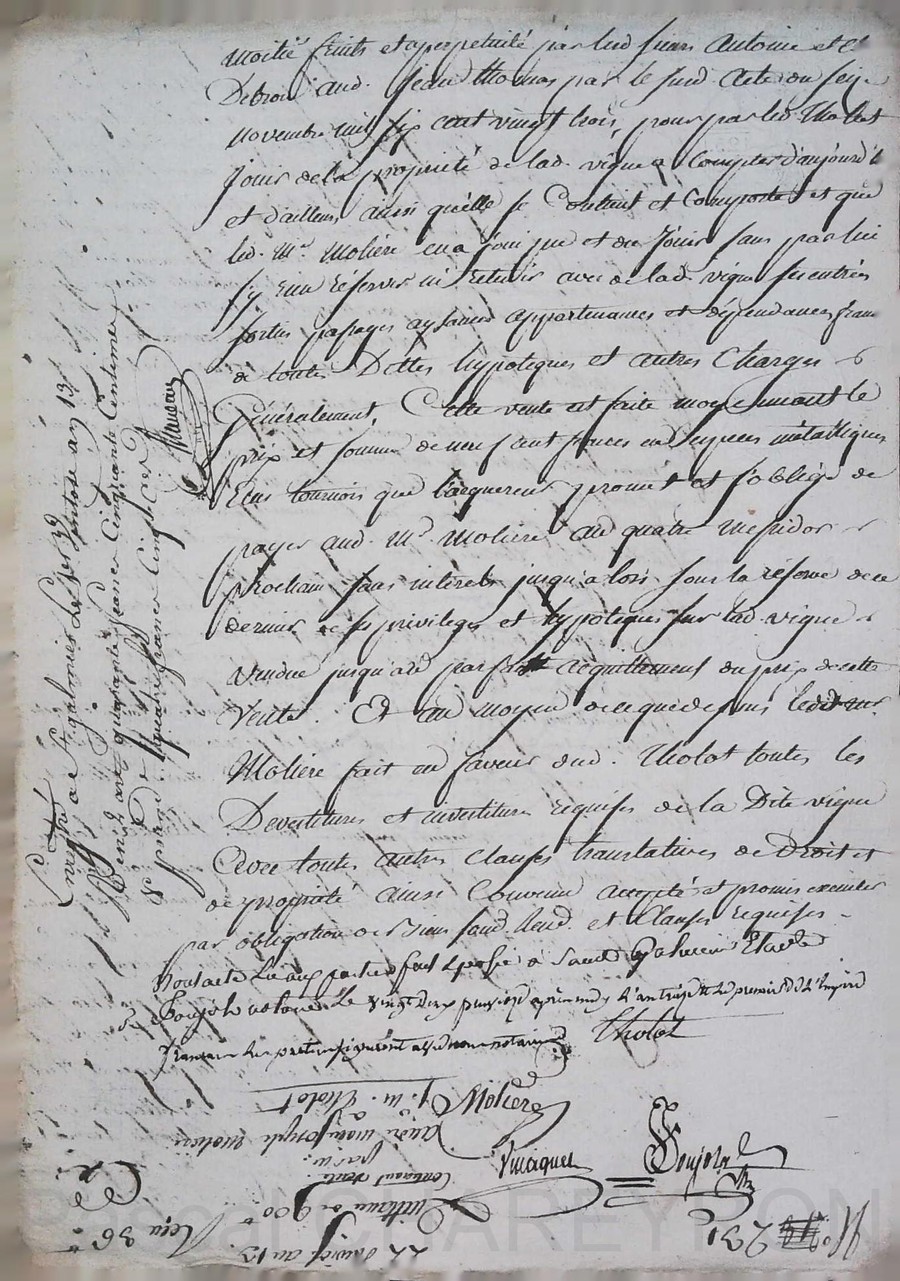 moitié fruits et a perpetuité par led. Antoine et
aud. Jean thomas par le sud. Acte du seize
novembre mil sept cent vingt trois, pour par led. tholot
Jouir de la proprieté de lad. vigne a Compter d'aujourd'h
et d'ailleurs ainsi qu'elle se Contient et Comporte et que
led. Mr. Moliére en a joui pu et du Jouir sans par lui
s'y rien réserver ni retenir avec de lad. vigne ses entrées
sorties passages aysances appartenances et dépendances franc
de toutes Dettes hypoteques et autres Charges
Généralement, Cette vente est faite moyennant le
prix et somme de neuf cent francs en espèces métalliques
Ecus tournois que l'acquereur promet et s'oblige de
payer aud. Mr. Moliere au quatre messidor
prochain sans interets jusqu'a lors sous la réserve de ce
dernier de ses privileges et hypoteques sur lad. vigne
vendue jusqu'au parfait acquittement du prix de cette
Vente. Et au moyen de ce que dessus ledit sieur
Moliére fait en faveur dud. tholot toutes les
Devestitures et investitures requises de la Dite vigne
Avec toutes autres clauses translatives de Droit et
de proprieté ainsi Convenu accepté et promis executer
par obligation de Biens soud. Rend. et Clauses requises
dont acte Lu aux parties fait & passé a Saint Galmier Etude
de Boujole notaire Le vingt deux pluviose aprés midy L'an treize de L'Empire
francais Les parties signeront avec nous notaire
tholot
Moliére
Vinciguet
Boujole
Enregistré a St. galmier Le 3 ventose an 13
quarante francs Cinquante Centimes
quatre francs Cinq
22 pluviose an 13
Quittance de 900
Contenant vente
par
andré marie joseph moliere
a
j. m. tholot
Reçu 36
No. 231
Pascal CHAREYRON